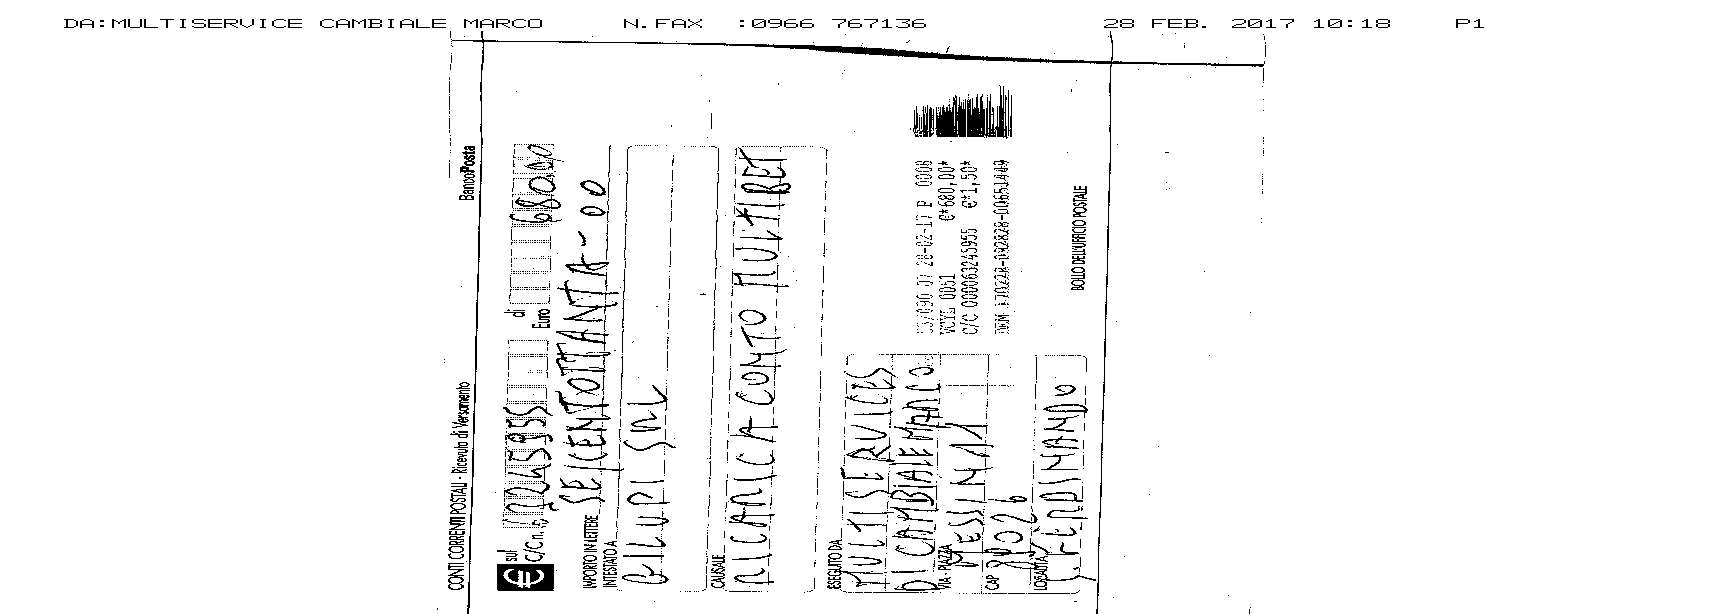 DA:MULTISERVICE CAMBIALE MARCO N.FAX :0966 767136 28 FEB. 2017 10:18 P1
CONTI CORRENTI POSTALI - Ricevuta di Versamento BancoPosta
€ sul C/C n. di Euro 680,00
IMPORTO IN LETTERE SEICENTOTTANTA-00
INTESTATO A
BILUPI SRL
CAUSALE
RICARICA CONTO MULTIBET
ESEGUITO DA
MULTISERVICES
DI CAMBIALE MARCO
VIA - PIAZZA MESSINA
CAP
LOCALITÀ FERDINANDO
28-02-17 P 0006
VCYL 0051 €*680,00*
C/C 000063245955 €*1,50*
BOLLO DELL'UFFICIO POSTALE